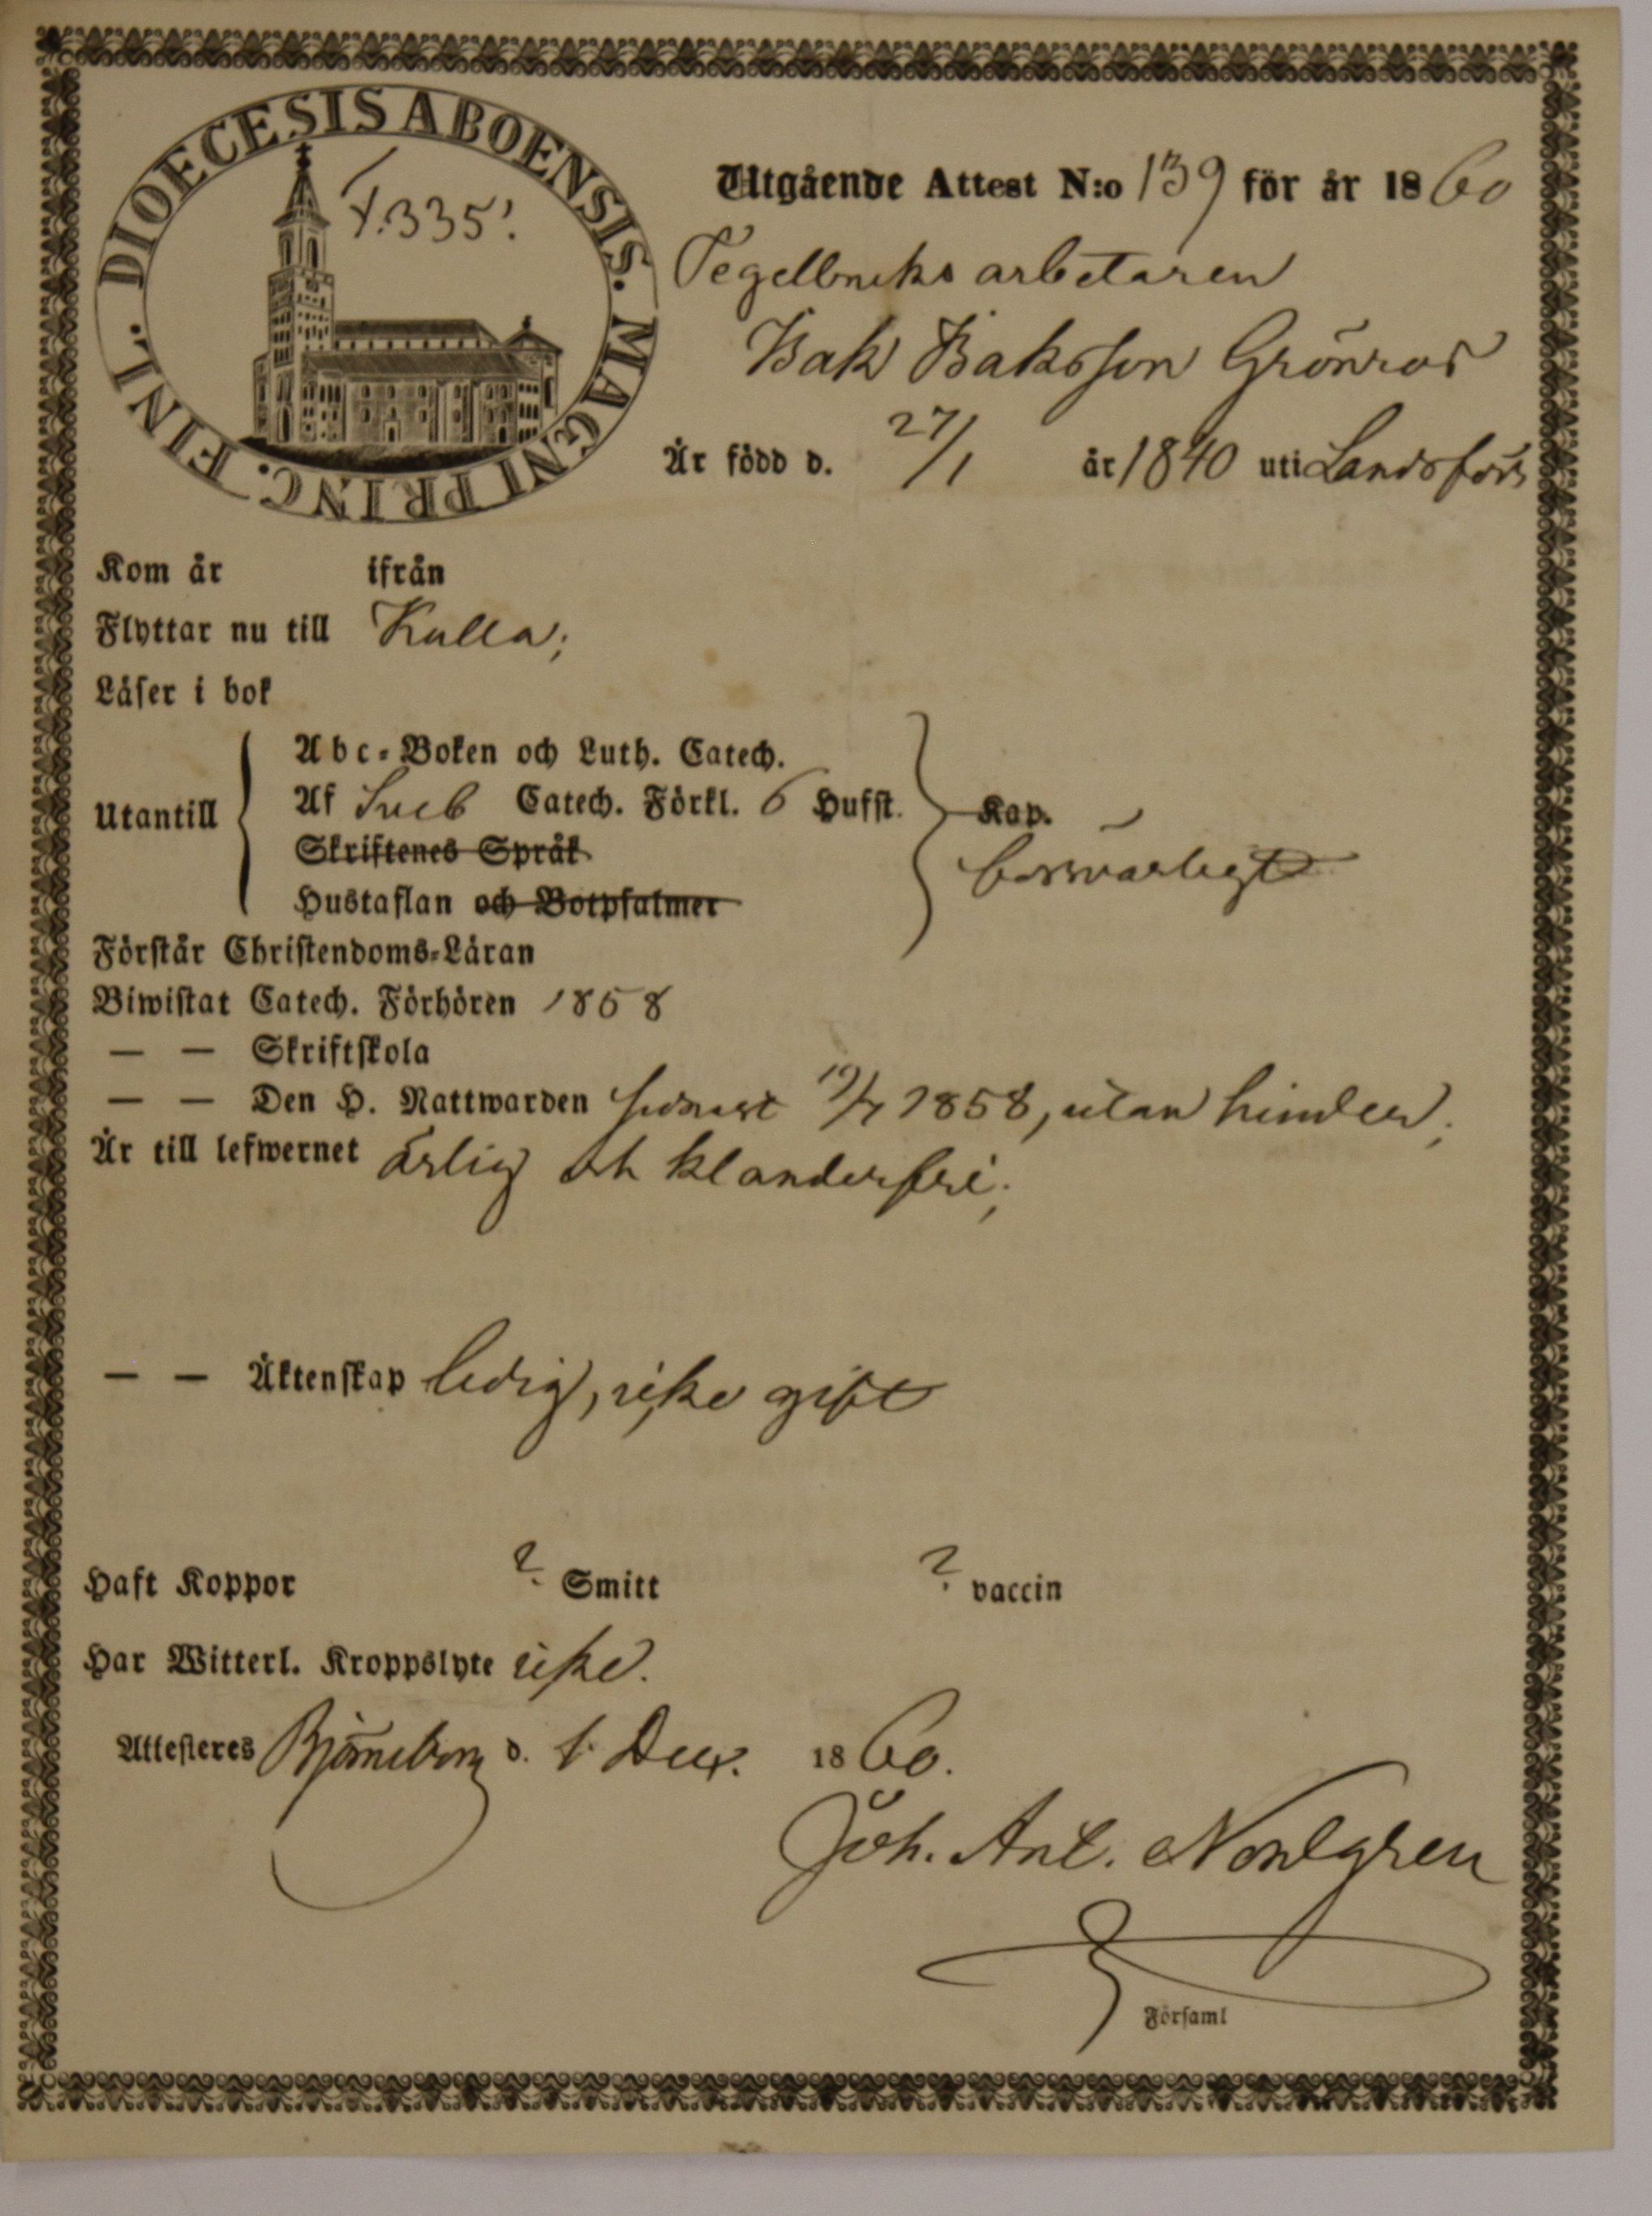 DIOECESIS ABOENSIS. MAGNI PRINC. FINL.
335
Utgående Attest N:o 139 för år 1860
Tegelbruks arbetaren
Isak Isaksson Grönroos
Är född d. 27/1 år 1840 uti Landsförs
Kom år ifrån
Flyttar nu till Kulla;
Läser i bok
Utantill
Abc-Boken och Luth. Catech.
Af Sveb Catech. Förkl. 6 Hufst. Kap.
Skriftenes Språk
Hustaflan och Botpsalmer
besvärligt
Förstår Christendoms-Läran
Biwistat Catech. Förhören 1858
— — Skriftskola
— — Den H. Nattwarden sednast 19/7 1858, utan hinder;
Är till lefwernet ärlig och klanderfri;
— — Äktenskap ledig, icke gift
Haft Koppor ? Smitt ? vaccin
Har Witterl. Kroppslyte icke.
Attesteres Björneborg d. 1 Dec. 1860.
Joh. Ant. Nordgren
Församl